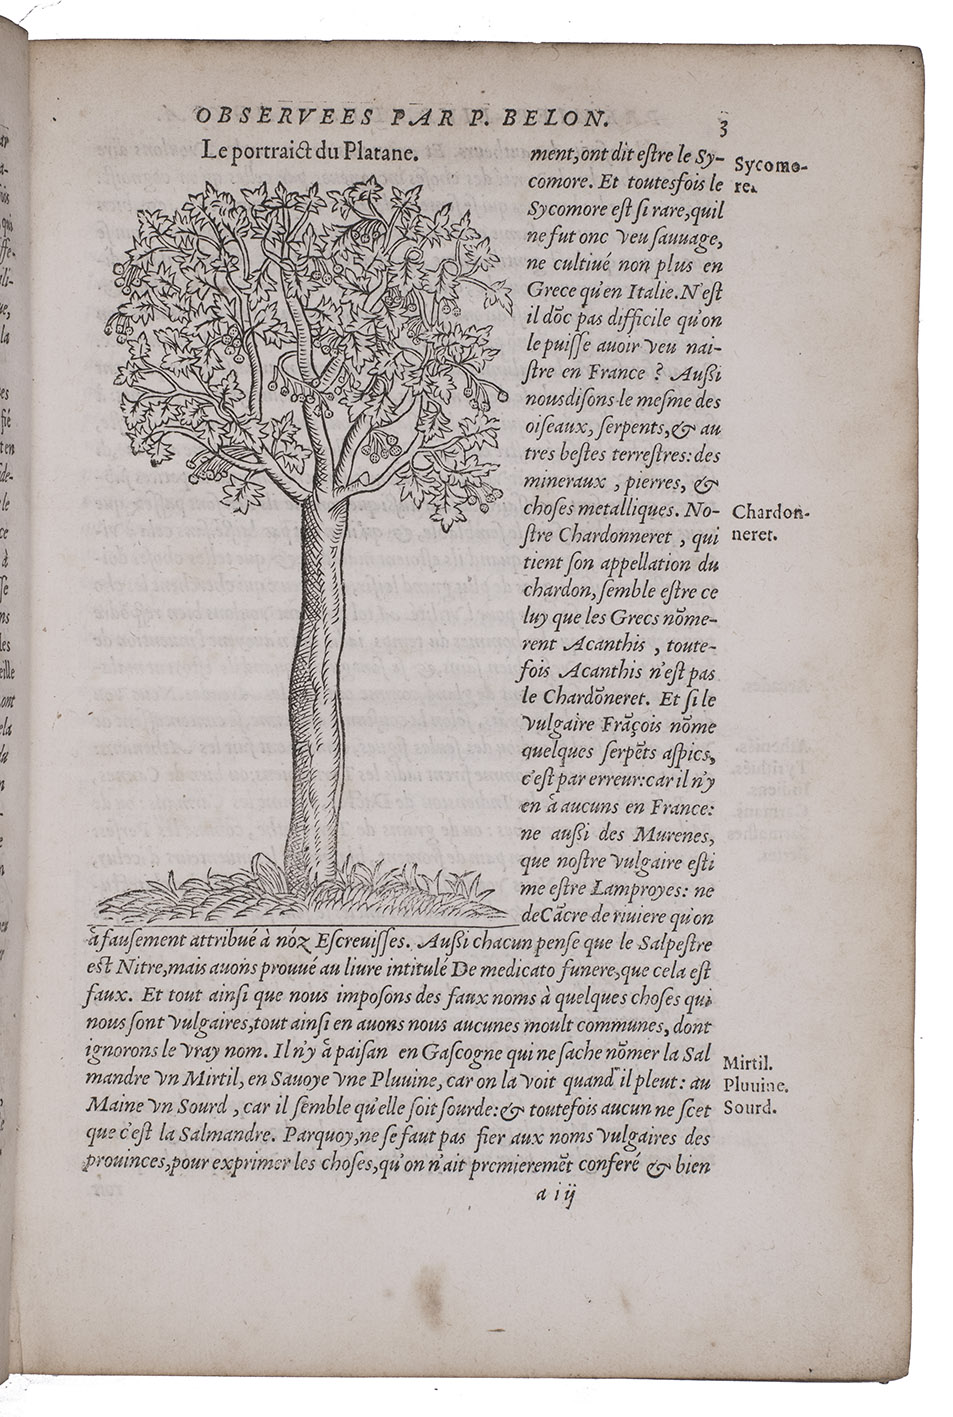 OBSERVEES PAR P. BELON.
3
Le portraict du Platane.
ment, ont dit estre le Sy-
comore. Et toutesfois le
Sycomore est si rare, quil
ne fut onc veu sauuage,
ne cultiué non plus en
Grece qu'en Italie. N'est
il dõc pas difficile qu'on
le puisse auoir veu nai-
stre en France ? Aussi
nous disons le mesme des
oiseaux, serpents, & au
tres bestes terrestres: des
mineraux , pierres, &
choses metalliques. No-
stre Chardonneret , qui
tient son appellation du
chardon, semble estre ce
luy que les Grecs nõme-
rent Acanthis , toute-
fois Acanthis n'est pas
le Chardõneret. Et si le
vulgaire Frãçois nõme
quelques serpẽts aspics,
c'est par erreur: car il n'y
en ã aucuns en France:
ne aussi des Murenes,
que nostre vulgaire esti
me estre Lamproyes: ne
de Cãcre de riuiere qu'on
ã fausement attribué à nóz Escreuisses. Aussi chacun pense que le Salpestre
est Nitre, mais auons prouué au liure intitulé De medicato funere, que cela est
faux. Et tout ainsi que nous imposons des faux noms à quelques choses qui
nous sont vulgaires, tout ainsi en auons nous aucunes moult communes, dont
ignorons le vray nom. Il n'y ã paisan en Gascogne qui ne sache nõmer la Sal
mandre vn Mirtil, en Sauoye vne Pluuine, car on la voit quand il pleut: au
Maine vn Sourd , car il semble qu'elle soit sourde: & toutefois aucun ne scet
que c'est la Salmandre. Parquoy, ne se faut pas fier aux noms vulgaires des
prouinces, pour exprimer les choses, qu'on n'ait premieremẽt conferé & bien
a iij
Sycomo-
re.
Chardon-
neret.
Mirtil.
Pluuine.
Sourd.